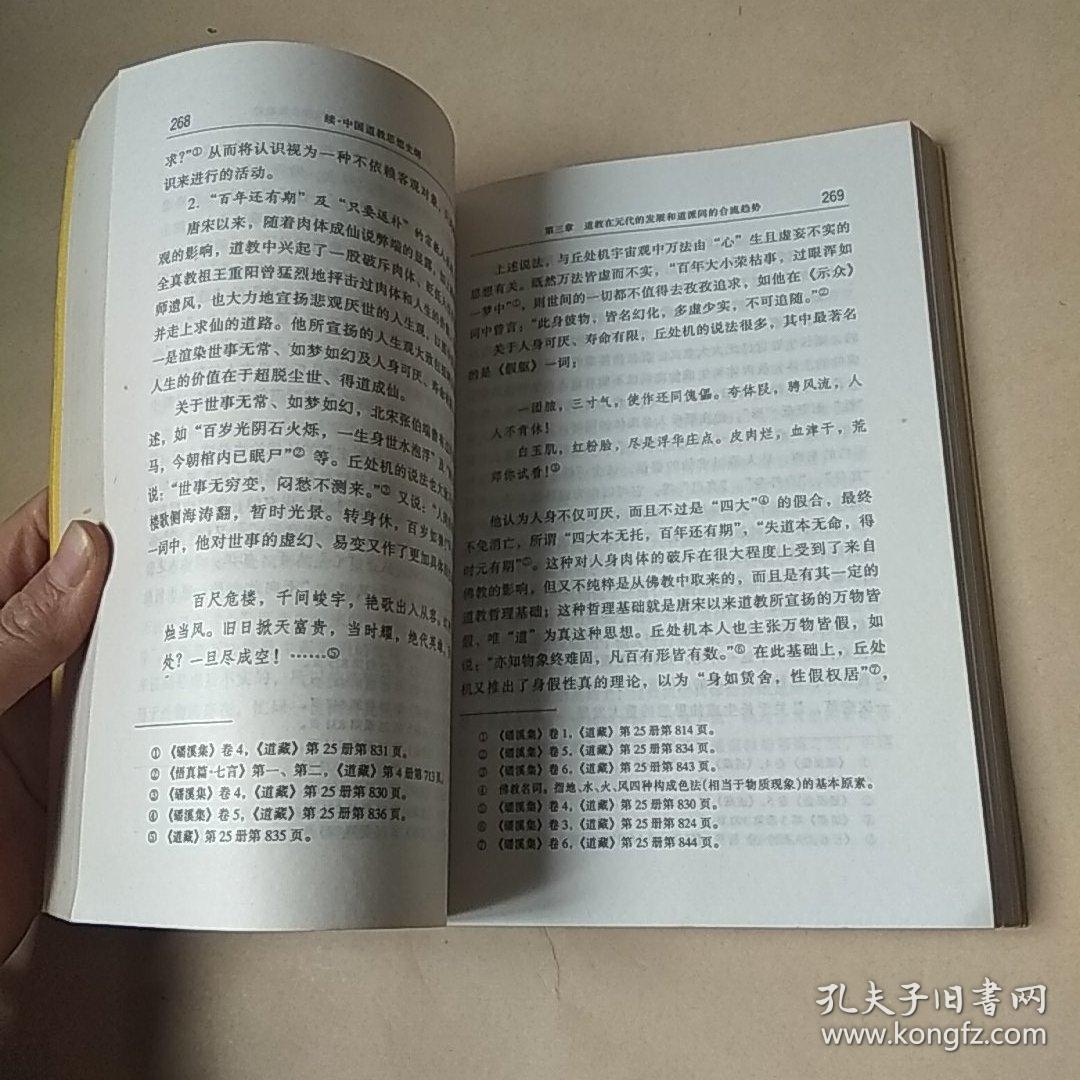 268
续·中国道教思想史纲
求?”① 从而将认识视为一种不依赖客观对象,
识来进行的活动。
2. “百年还有期” 及 “只要返朴” 的宗教人
唐宋以来，随着肉体成仙说弊端的显露，
观的影响，道教中兴起了一股破斥肉体、贬低
全真教祖王重阳曾猛烈地抨击过肉体和人生的价值
师遗风，也大力地宣扬悲观厌世的人生观，以
并走上求仙的道路。他所宣扬的人生观大致
一是渲染世事无常、如梦如幻及人身可厌、寿命
人生的价值在于超脱尘世、得道成仙。
关于世事无常、如梦如幻，北宋张伯端曾
述，如 “百岁光阴石火烁，一生身世水泡浮” 及
马，今朝棺内已眠尸”② 等。丘处机的说法也大
说：“世事无穷变，闷愁不测来。”③ 又说：“人
楼歌侧海涛翻，暂时光景。转身休，百岁如
一词中，他对世事的虚幻、易变又作了更加具体
百尺危楼，千间峻宇，艳歌出入从容，
烛当风。旧日掀天富贵，当时耀，绝代英雄，
处？一旦尽成空！……⑤
① 《磻溪集》卷 4，《道藏》第 25 册第 831 页。
② 《悟真篇·七言》第一、第二，《道藏》第 4 册第 713 页。
③ 《磻溪集》卷 4，《道藏》第 25 册第 830 页。
④ 《磻溪集》卷 5，《道藏》第 25 册第 836 页。
⑤ 《道藏》第 25 册第 835 页。
第三章 道教在元代的发展和道派间的合流趋势
269
上述说法，与丘处机宇宙观中万法由 “心” 生且虚妄不实的
思想有关。既然万法皆虚而不实，“百年大小荣枯事，过眼浑如
一梦中”①，则世间的一切都不值得去孜孜追求，如他在《示众》
词中曾言：“此身彼物，皆名幻化，多虚少实，不可追随。”②
关于人身可厌、寿命有限，丘处机的说法很多，其中最著名
的是《假躯》一词：
一团脓，三寸气，使作还同傀儡。夸体段，骋风流，人
人不肯休！
白玉肌，红粉脸，尽是浮华庄点。皮肉烂，血津干，荒
郊你试看！③
他认为人身不仅可厌，而且不过是 “四大”④ 的假合，最终
不免消亡，所谓 “四大本无托，百年还有期”，“失道本无命，得
时元有期”⑤。这种对人身肉体的破斥在很大程度上受到了来自
佛教的影响，但又不纯粹是从佛教中取来的，而且是有其一定的
道教哲理基础；这种哲理基础就是唐宋以来道教所宣扬的万物皆
假，唯 “道” 为真这种思想。丘处机本人也主张万物皆假，如
说：“亦知物象终难固，凡百有形皆有数。”⑥ 在此基础上，丘处
机又推出了身假性真的理论，以为 “身如赁舍，性假权居”⑦，
① 《磻溪集》卷 1，《道藏》第 25 册第 814 页。
② 《磻溪集》卷 5，《道藏》第 25 册第 834 页。
③ 《磻溪集》卷 6，《道藏》第 25 册第 843 页。
④ 佛教名词。指地、水、火、风四种构成色法（相当于物质现象）的基本原素。
⑤ 《磻溪集》卷 4，《道藏》第 25 册第 830 页。
⑥ 《磻溪集》卷 3，《道藏》第 25 册第 824 页。
⑦ 《磻溪集》卷 6，《道藏》第 25 册第 844 页。
孔夫子旧書网
www.kongfz.com